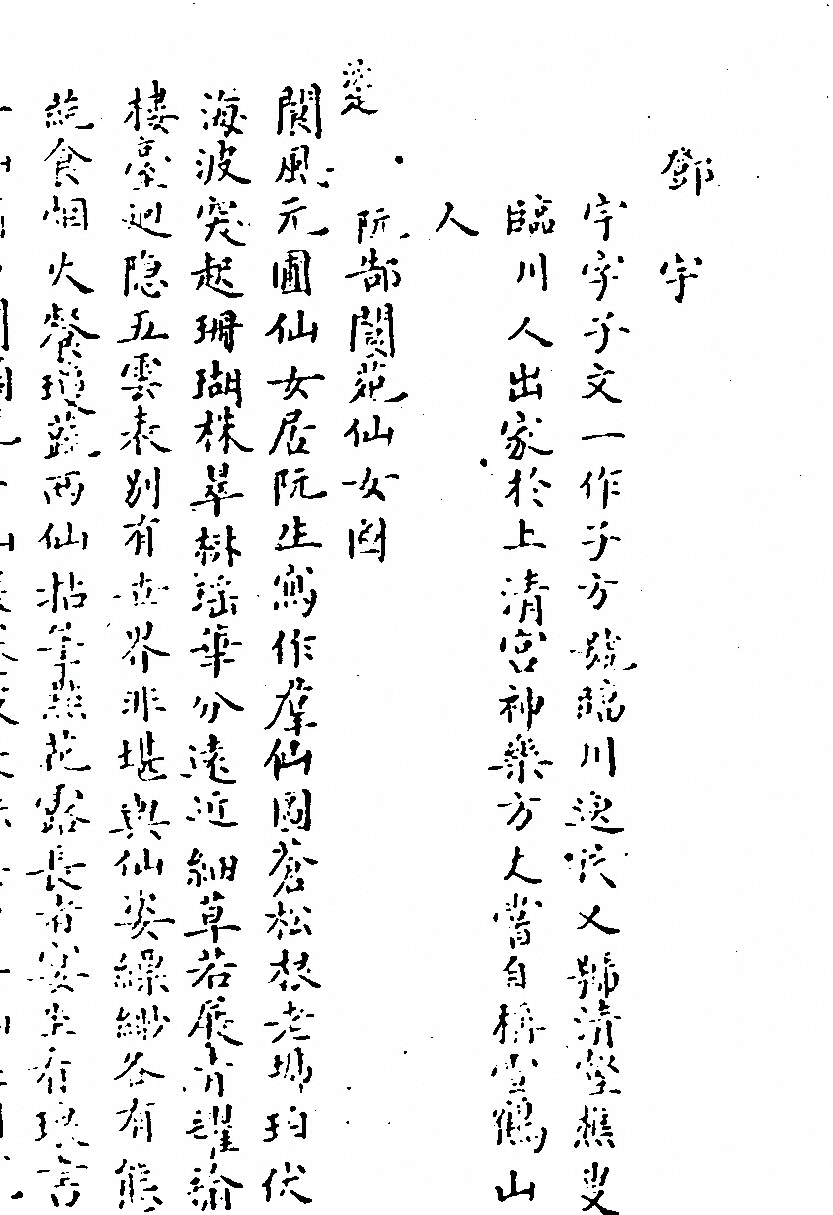 鄧宇
宇字子文一作子方號臨川逸民又號清壑樵叟
臨川人出家於上清宮神樂方丈嘗自稱雪鶴山
人
阮郜閬苑仙女圖
閬風元圃仙女居阮生寫作羣仙圖蒼松根老堪珀伏
海波突起珊瑚株翠樹瑤華分遠近細草若展青氍毹
樓臺迥隱五雲表別有世界非堪輿仙姿縹緲各有態
蔬食烟火餐瓊蕤兩仙拈筆蘸花露長者宴坐有瓊書